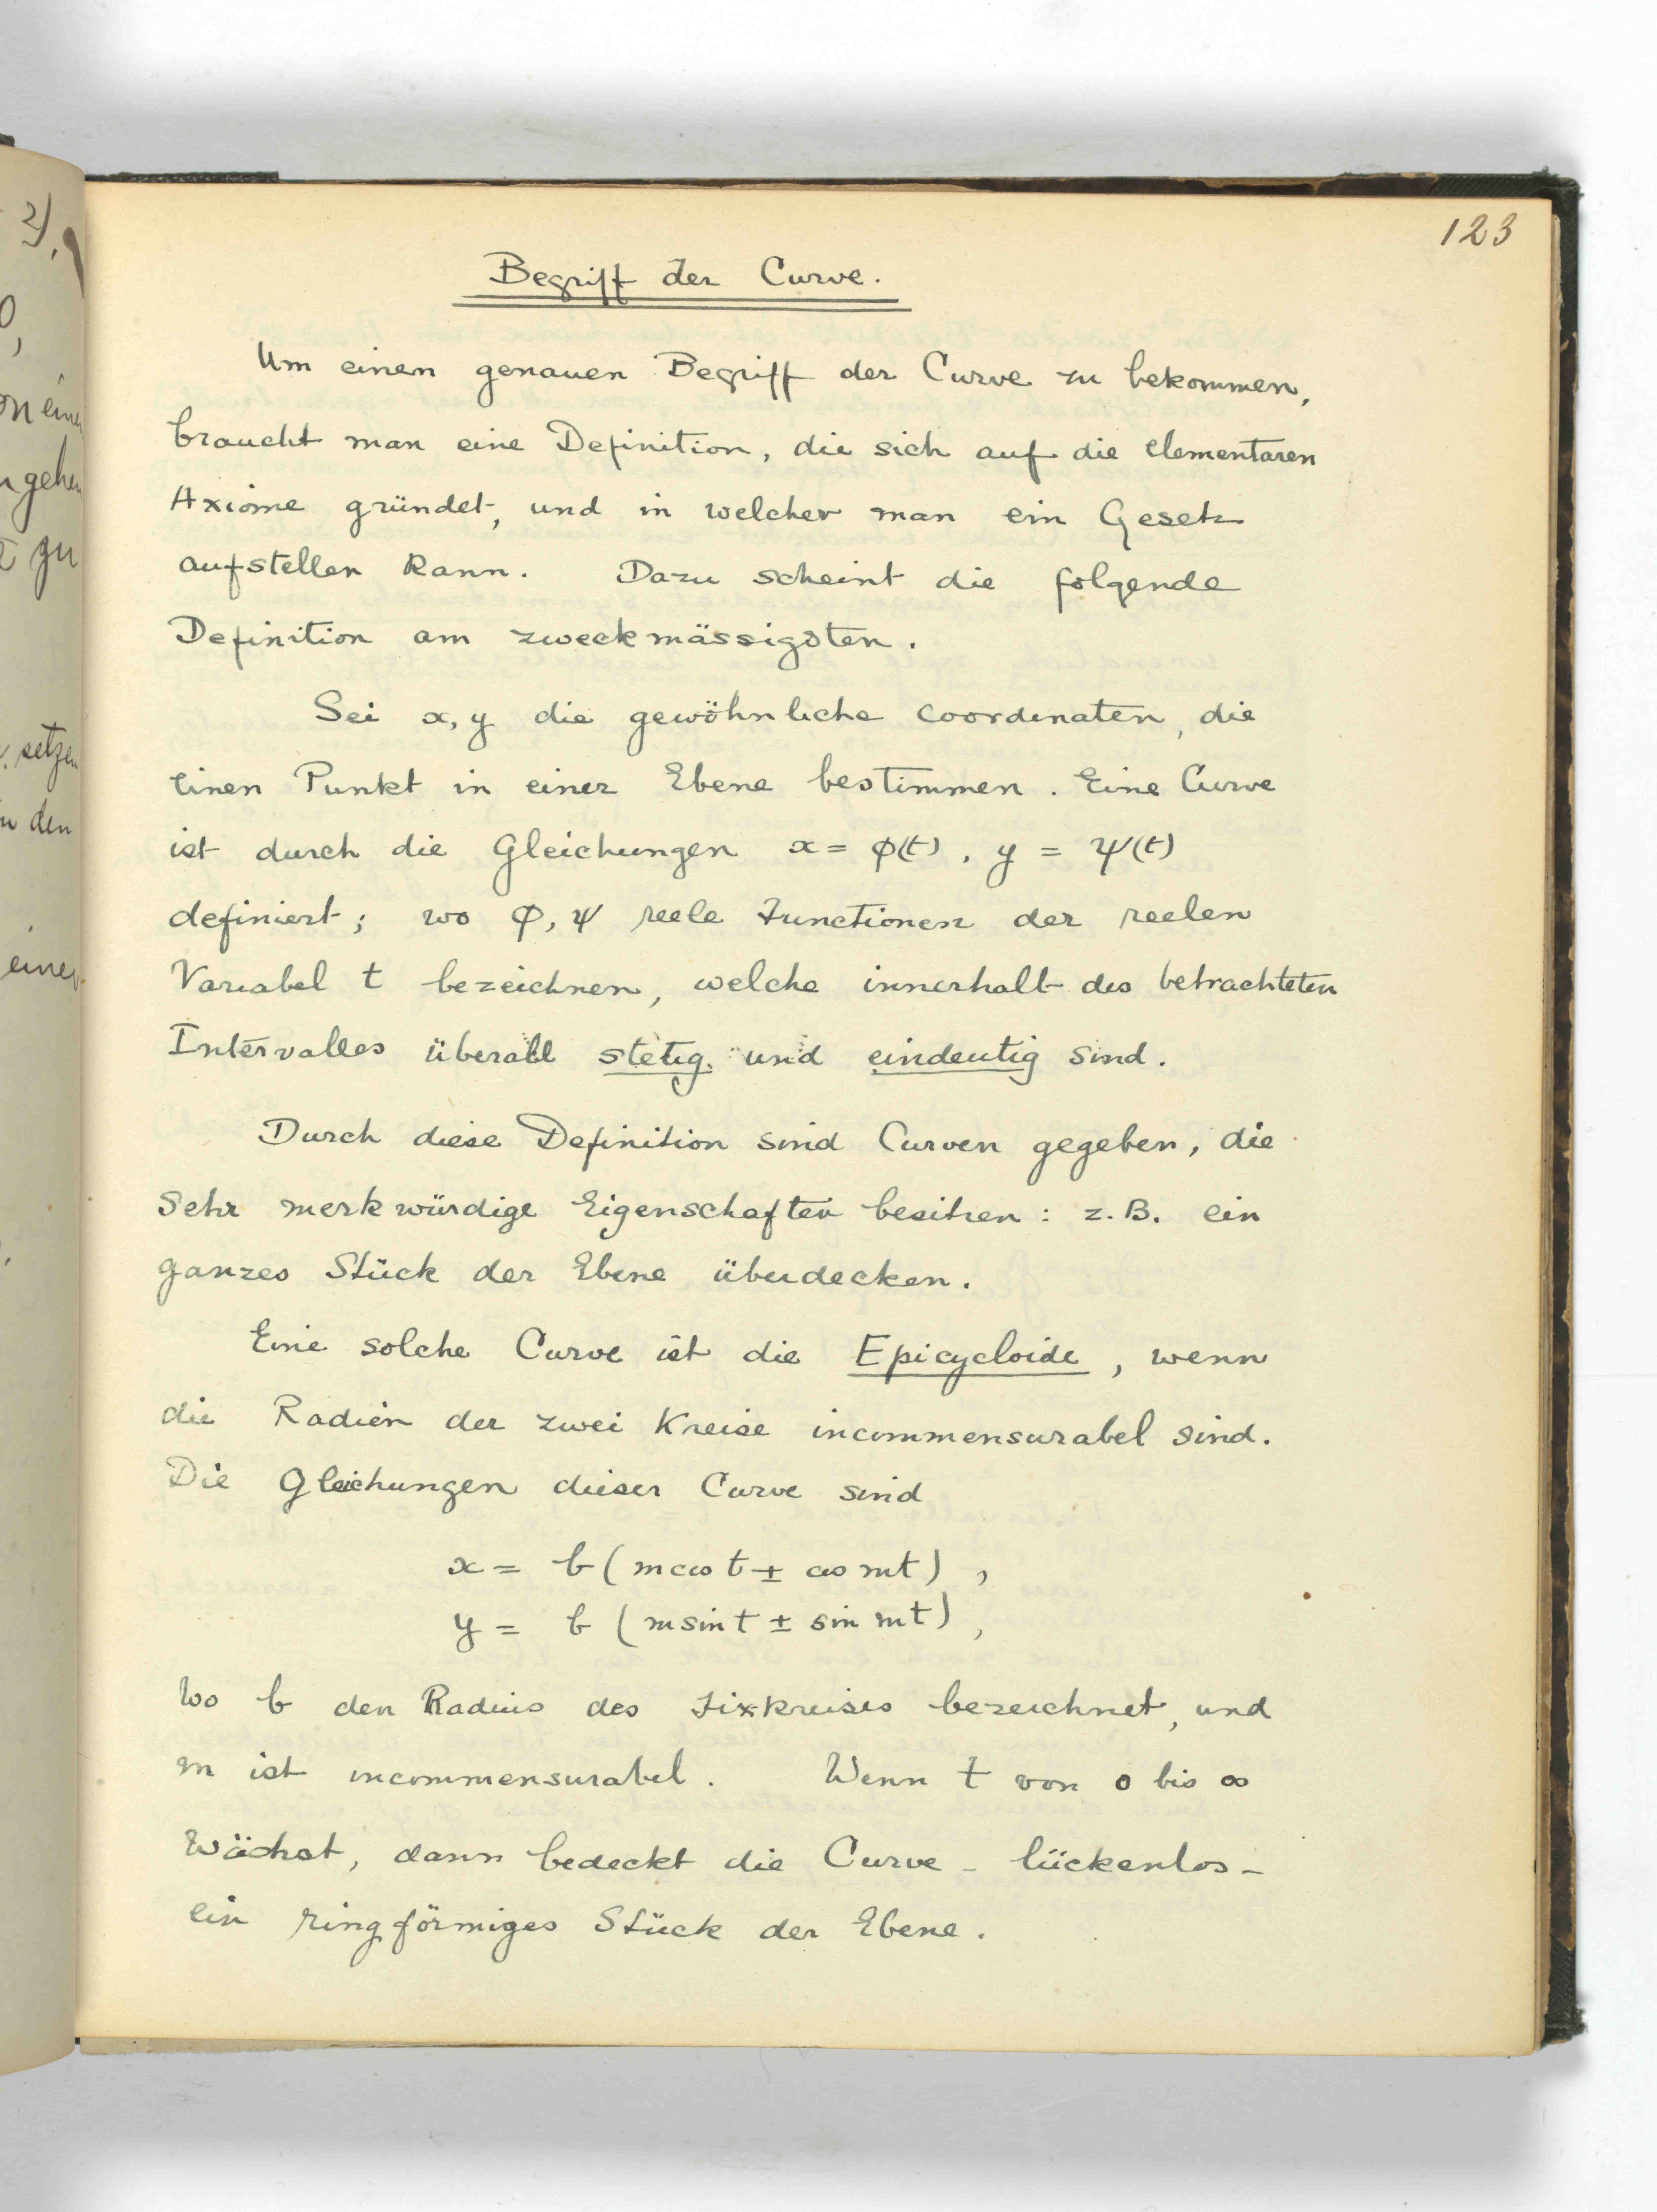 2),
0,
n eine
gehen
zu
setzen
den
einer
123
Begriff der Curve.
Um einen genauen Begriff der Curve zu bekommen,
braucht man eine Definition, die sich auf die elementaren
Axiome gründet, und in welcher man ein Gesetz
aufstellen kann. Dazu scheint die folgende
Definition am zweckmässigsten.
Sei x, y die gewöhnliche Coordinaten, die
einen Punkt in einer Ebene bestimmen. Eine Curve
ist durch die Gleichungen x = φ(t), y = ψ(t)
definiert; wo φ, ψ reele Functionen der reelen
Variabel t bezeichnen, welche innerhalb des betrachteten
Intervalles überall stetig und eindeutig sind.
Durch diese Definition sind Curven gegeben, die
sehr merkwürdige Eigenschaften besitzen: z.B. ein
ganzes Stück der Ebene überdecken.
Eine solche Curve ist die Epicycloide, wenn
die Radien der zwei Kreise incommensurabel sind.
Die Gleichungen dieser Curve sind
x = b (m cos t ± cos mt),
y = b (m sin t ± sin mt),
wo b den Radius des Fixkreises bezeichnet, und
m ist incommensurabel. Wenn t von 0 bis ∞
wächst, dann bedeckt die Curve – lückenlos –
ein ringförmiges Stück der Ebene.